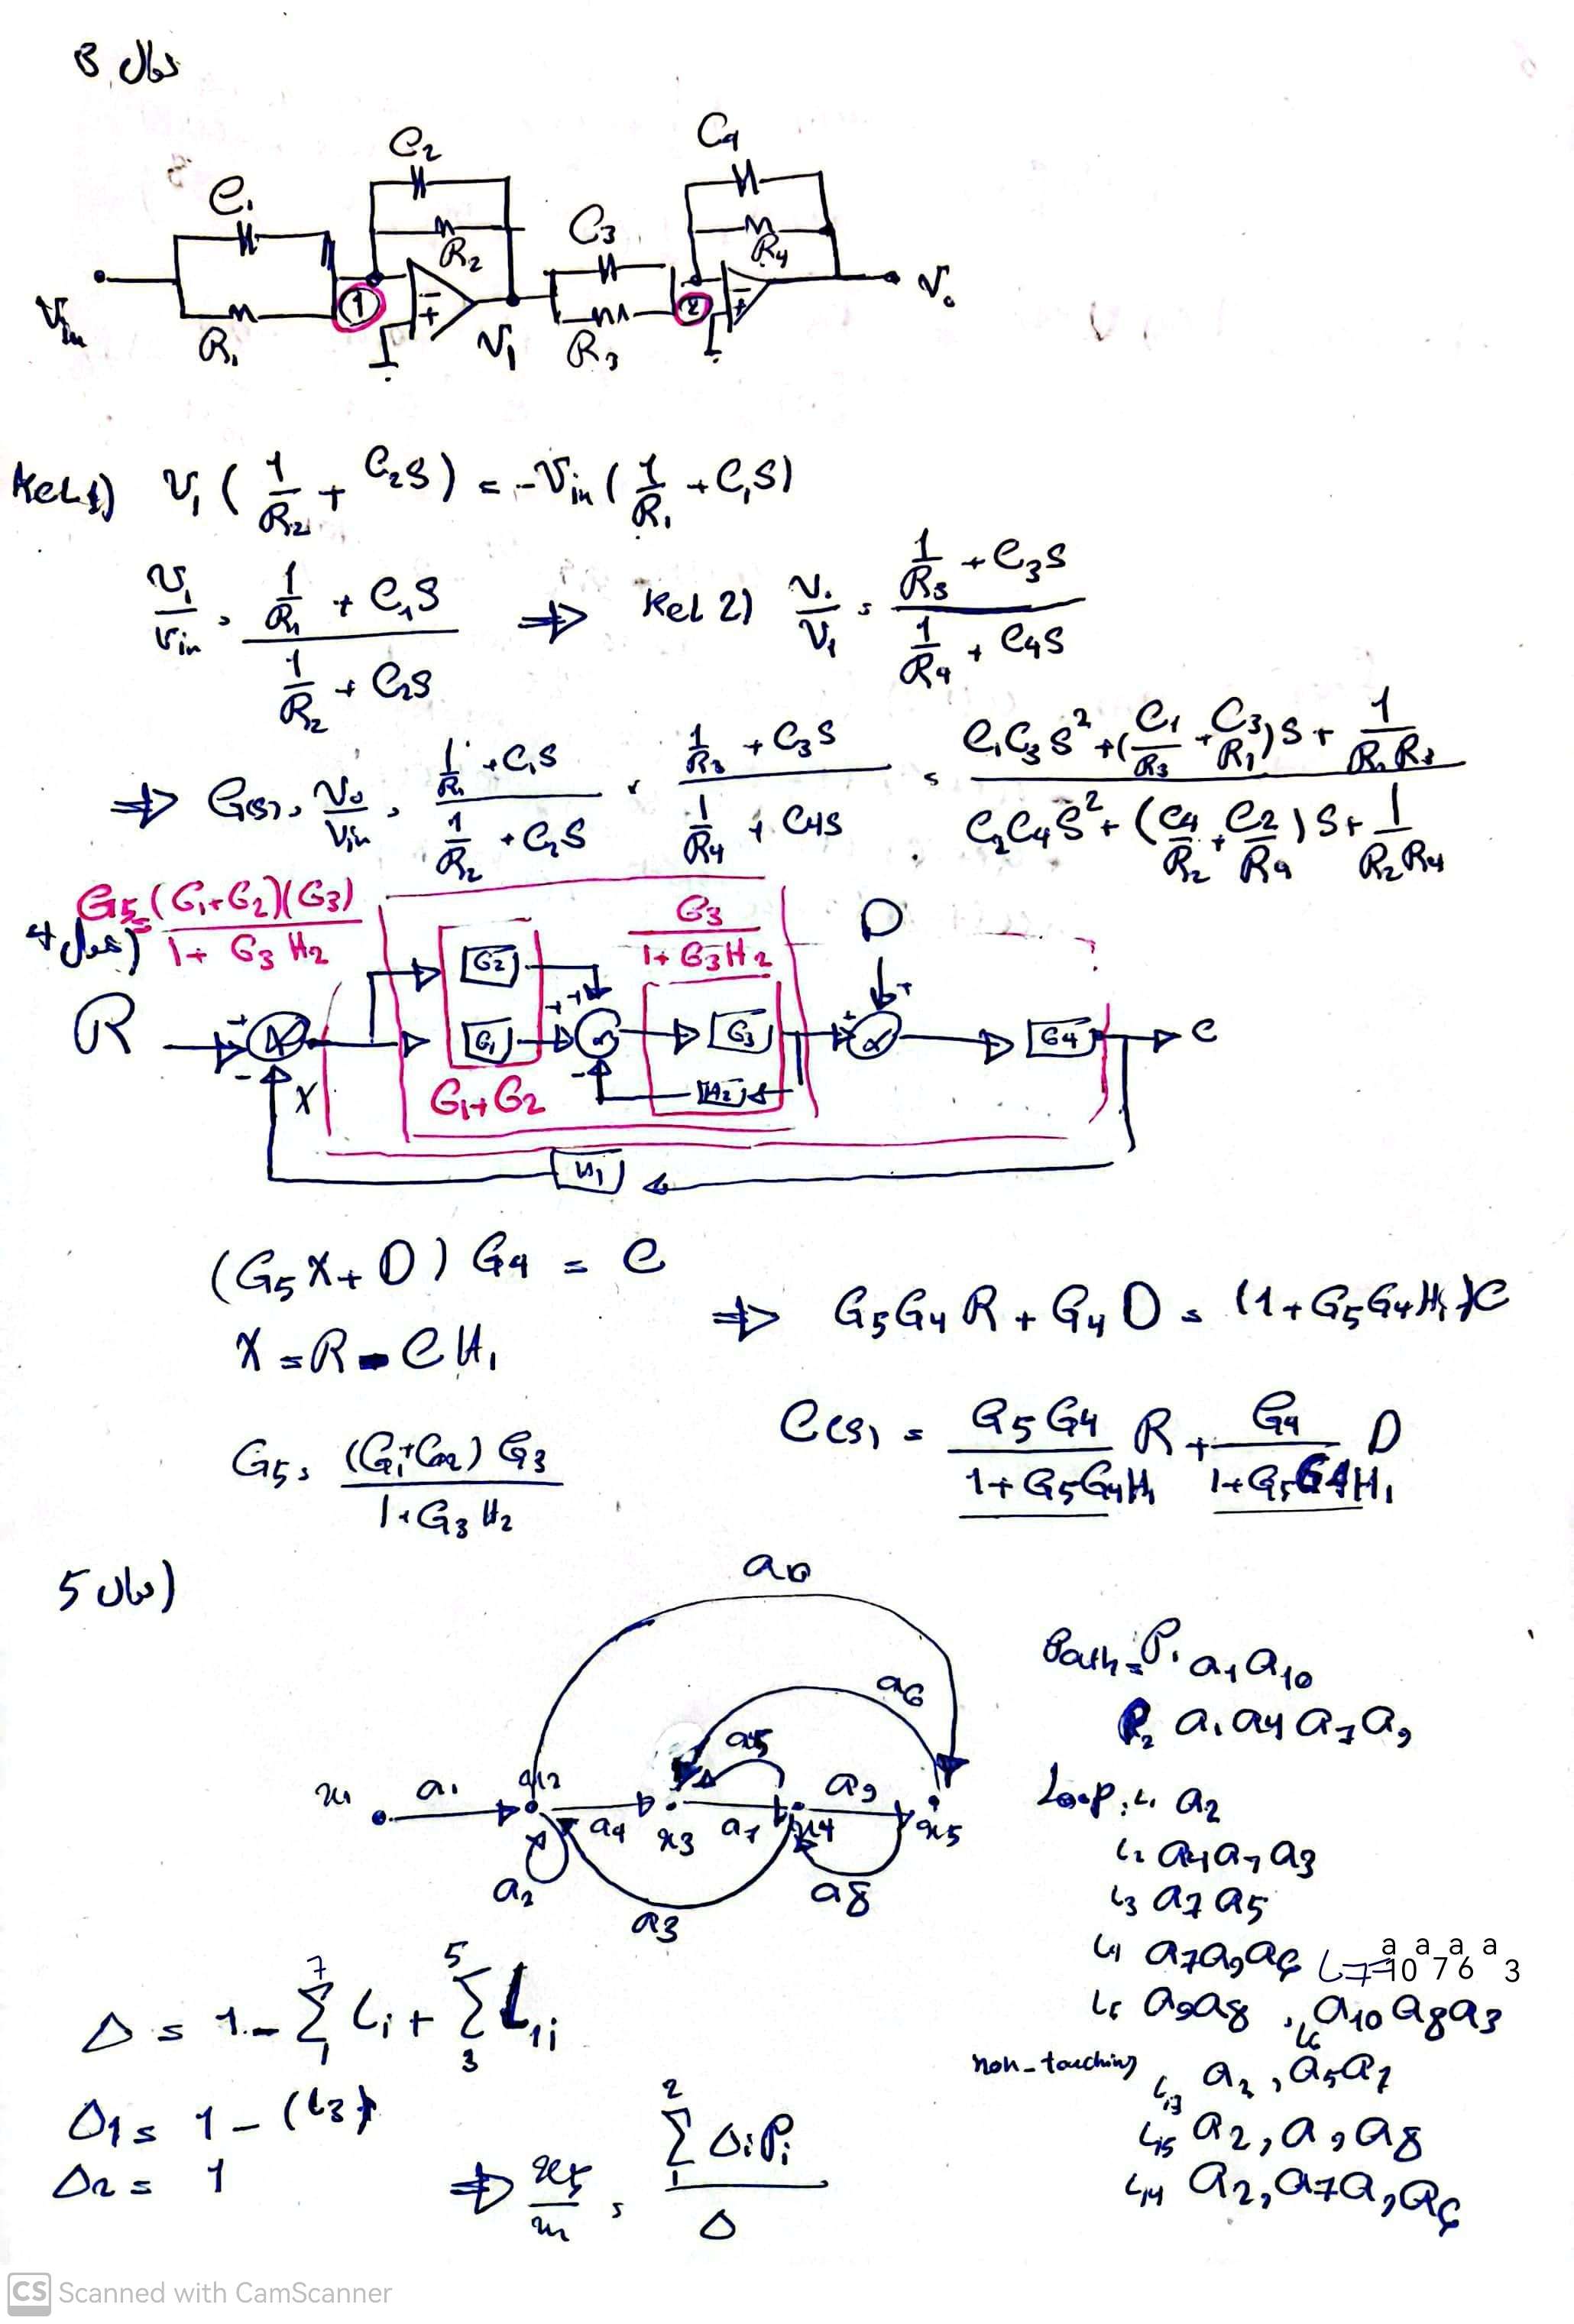 3 سوال
C₁
C₂
C₃
C₄
R₂
R₄
Vin
R₁
①
V₁
R₃
②
V₀
KCL 1) V₁ ( 1/R₂ + C₂S ) = -Vin ( 1/R₁ + C₁S )
V₁/Vin = (1/R₁ + C₁S)/(1/R₂ + C₂S) ⇒ KCL 2) V₀/V₁ = (1/R₃ + C₃S)/(1/R₄ + C₄S)
⇒ G(s) = V₀/Vin = (1/R₁ + C₁S)/(1/R₂ + C₂S) · (1/R₃ + C₃S)/(1/R₄ + C₄S) = (C₁C₃S² + (C₁/R₃ + C₃/R₁)S + 1/R₁R₃)/(C₂C₄S² + (C₄/R₂ + C₂/R₄)S + 1/R₂R₄)
G5 = (G₁+G₂)(G3)/(1+G3H2)
4 سوال)
G3/(1+G3H2)
D
G2
R
G1
G3
G4
C
X
G1+G2
H2
H1
(G5X + D) G4 = C
⇒ G5G4R + G4D = (1+G5G4H₁)C
X = R - CH₁
G5 = (G₁+G2)G3/(1+G3H2)
C(S) = G5G4/(1+G5G4H₁) R + G4/(1+G5G4H₁) D
5 سوال)
a10
a6
a5
x₁
a₁
x2
a4
x3
a7
x4
a9
x5
a2
a3
a8
Path = P₁ a₁a10
P₂ a₁a4a7a9
Loop: L₁ a2
L2 a4a7a3
L3 a7a5
L4 a7a9a6 L7=a10a7a6a3
L5 a9a8 , L6 a10a8a3
non-touching L13 a2, a5a7
L15 a2, a9a8
L14 a2, a7a9a6
Δ = 1 - Σ₁⁷ Li + Σ₃⁵ L1i
Δ1 = 1 - (L3)
Δ2 = 1
⇒ x5/x1 = Σ₁² ΔiPi / Δ
CS Scanned with CamScanner